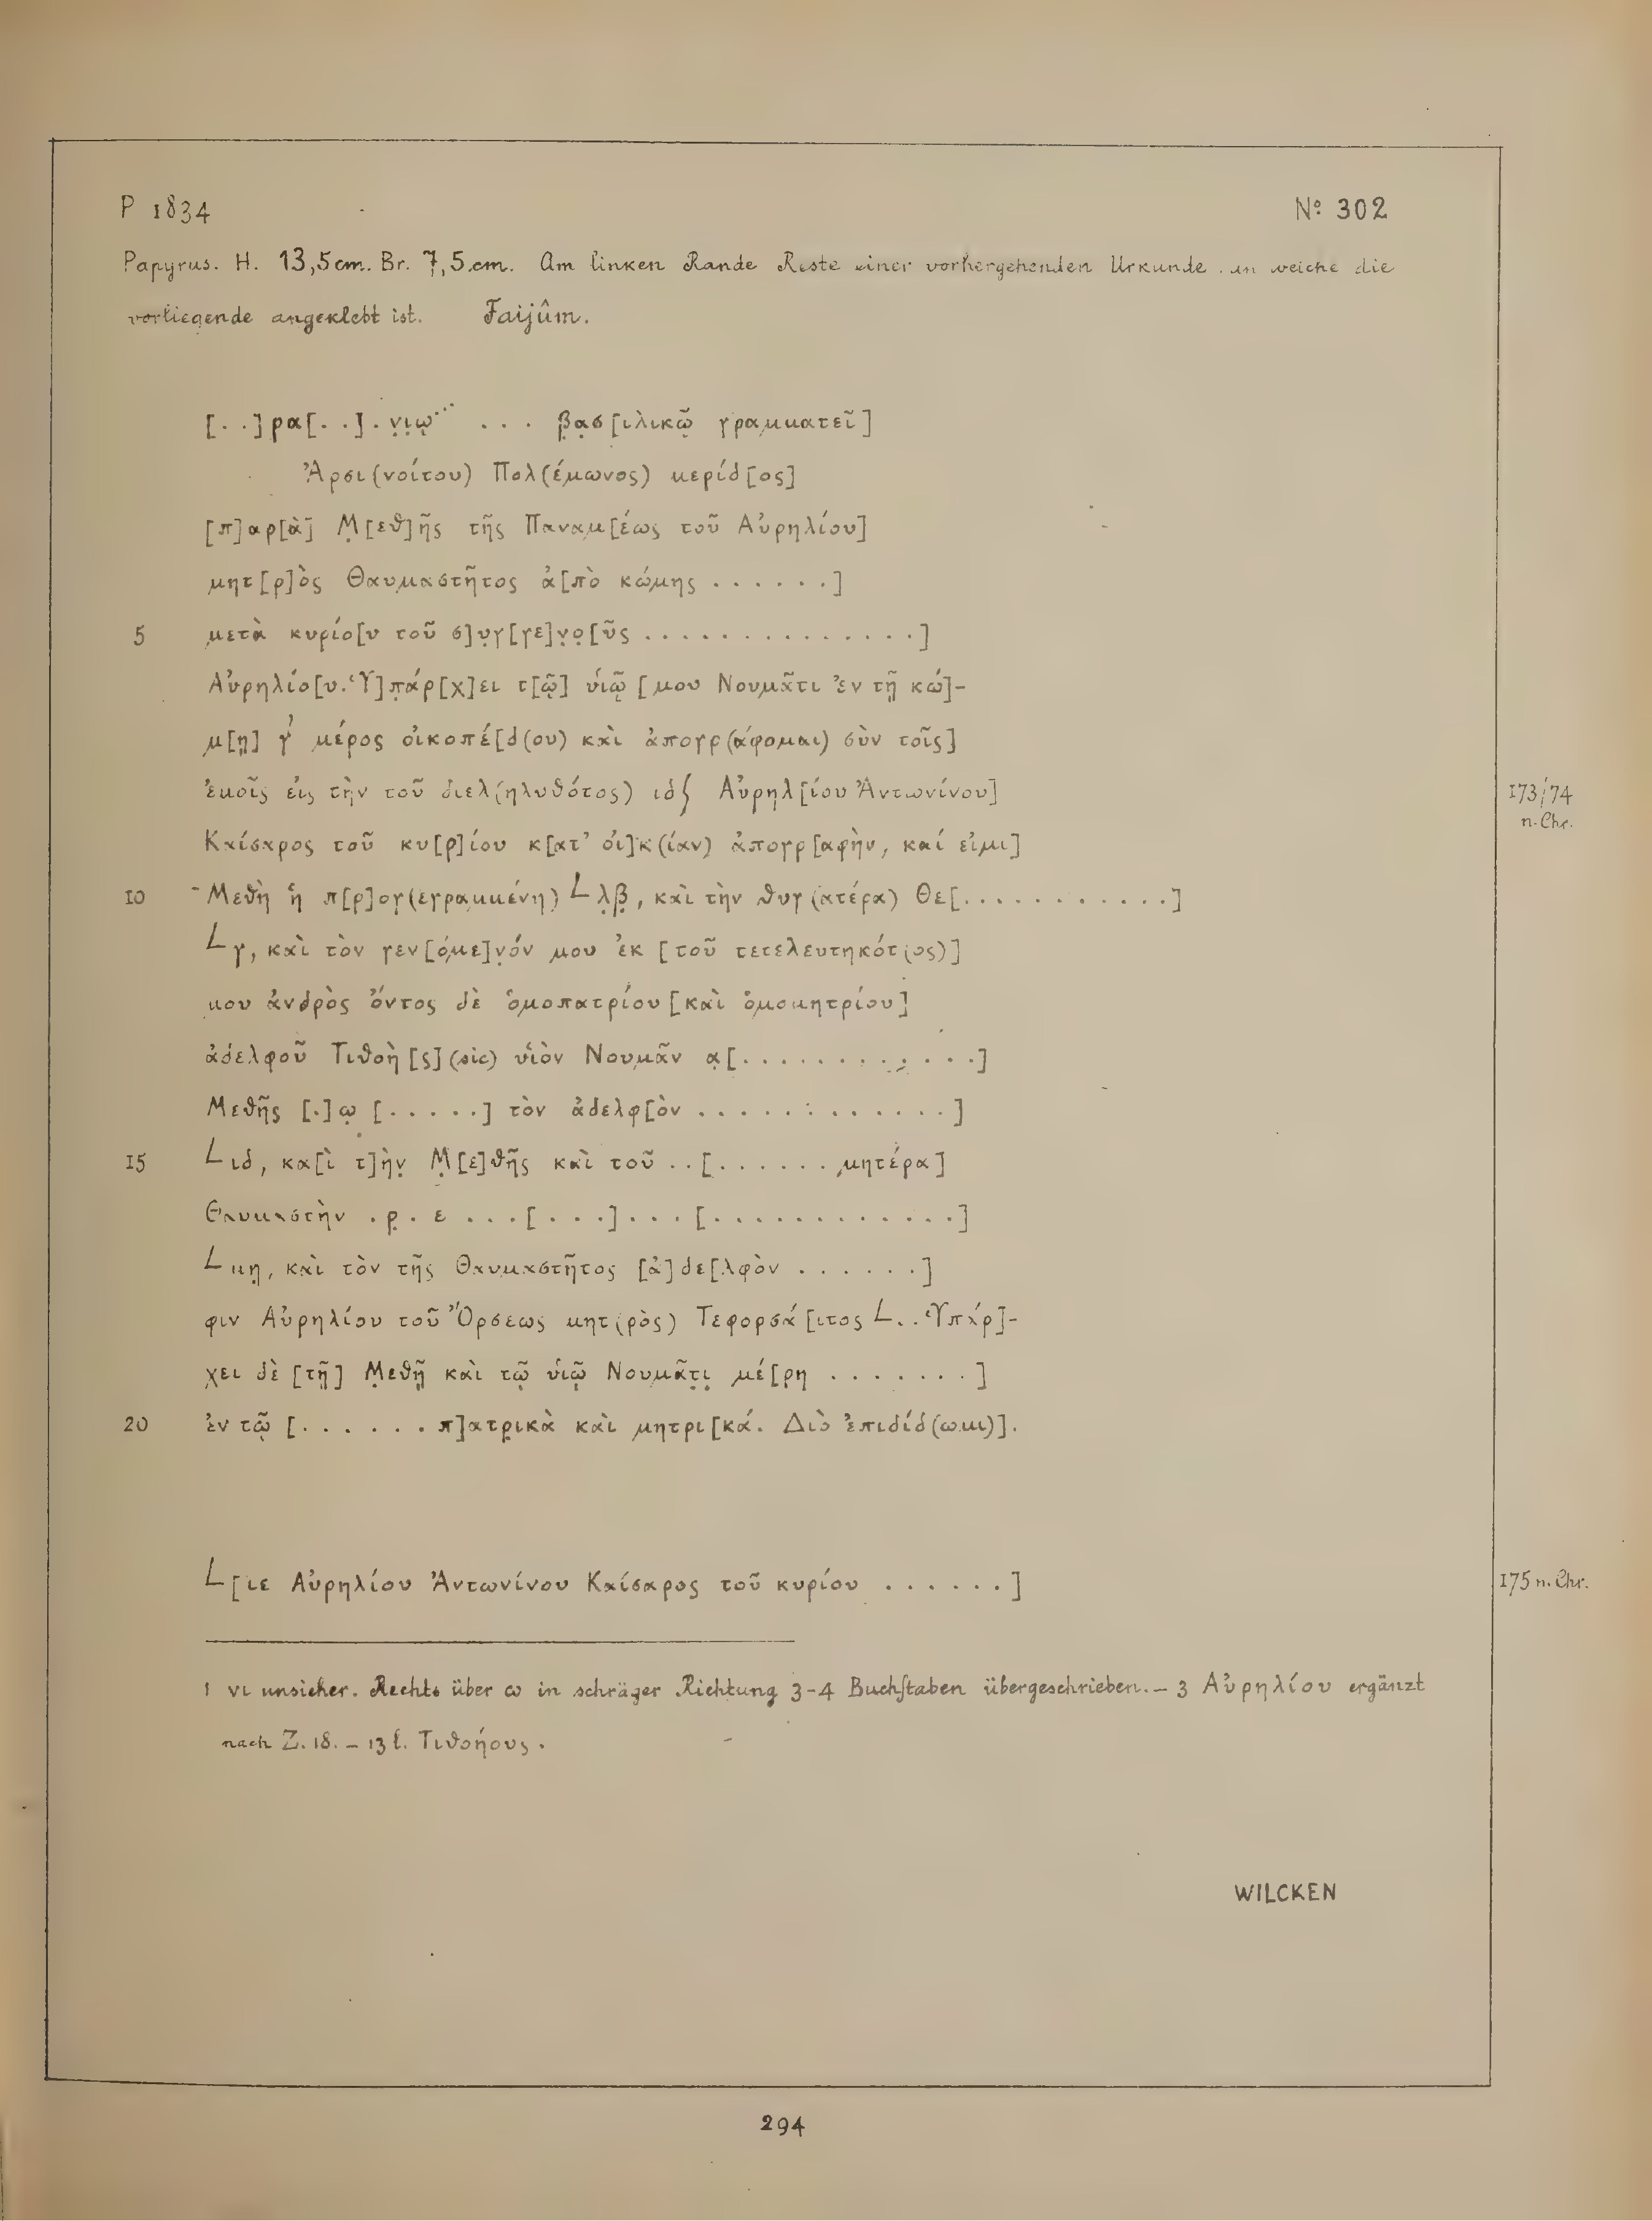 P 1834 Nº 302
Papyrus. H. 13,5cm. Br. 7,5.cm. Am linken Rande Reste einer vorhergehenden Urkunde, an welche die
vorliegende angeklebt ist. Faijûm.
[..]ρα[..].ν̣ι̣ω̣ ... β̣α̣σ[ιλικῷ γραμματεῖ]
Ἀρσι(νοίτου) Πολ(έμωνος) μερίδ[ος]
[π]αρ[ὰ] Μ̣[εθ]ῆς τῆς Παναμ[έως τοῦ Αὐρηλίου]
μητ[ρ]ὸς Θαυμαστῆτος ἀ[πὸ κώμης ......]
5 μετὰ κυρίο[υ τοῦ σ]υ̣γ[γε]ν̣ο̣[ῦς ..............]
Αὐρηλίο[υ. Ὑ]π̣άρ[χ]ει τ[ῷ] υἱῷ [μου Νουμᾶτι ἐν τῇ κώ]-
μ[ῃ] γ´ μέρος οἰκοπέ[δ(ου) καὶ ἀπογρ(άφομαι) σὺν τοῖς]
ἐμοῖς εἰς τὴν τοῦ διελ(ηλυθότος) ιδ∫ Αὐρηλ[ίου Ἀντωνίνου] 173/74
n. Chr.
Καίσαρος τοῦ κυ[ρ]ίου κ[ατ’ οἰ]κ(ίαν) ἀπογρ[αφὴν, καί εἰμι]
10 Μεθὴ ἡ π[ρ]ογ̣(εγραμμένη) L λ̣β̣, καὶ τὴν θυγ(ατέρα) Θε[...........]
L γ, καὶ τὸν γεν[όμε]ν̣όν μου ἐκ [τοῦ τετελευτηκότ(ος)]
μου ἀνδρὸς ὄντος δὲ ὁμοπατρίου [καὶ ὁμομητρίου]
ἀδελφοῦ Τιθοὴ[ς] (sic) υἱὸν Νουμᾶν α̣[............]
Μεθῆς [.]ω̣ [.....] τὸν ἀδελφ[ὸν .............]
15 L ιδ, κα[ὶ τ]ὴν̣ Μ̣[ε]θῆς καὶ τοῦ ..[...... μητέρα]
Θαυμαστὴν .ρ̣.ε ...[...]...[............]
L μη̣, καὶ τὸν τῆς Θαυμαστῆτος [ἀ]δε[λφὸν ......]
φιν Αὐρηλίου τοῦ Ὄρσεως μητ(ρὸς) Τεφορσά[ιτος L .. Ὑπάρ]-
χει δὲ [τῇ] Μ̣εθῇ καὶ τῷ υἱῷ Νουμᾶτ̣ι̣ μέ[ρη .......]
20 ἐν τῷ [...... π]ατρικὰ καὶ μητρι[κά. Διὸ ἐπιδίδ(ωμι)].
L [ιε Αὐρηλίου Ἀντωνίνου Καίσαρος τοῦ κυρίου ......] 175 n. Chr.
1 νι unsicher. Rechts über ω in schräger Richtung 3-4 Buchstaben übergeschrieben. — 3 Αὐρηλίου ergänzt
nach Z. 18. — 13 l. Τιθοήους.
WILCKEN
294